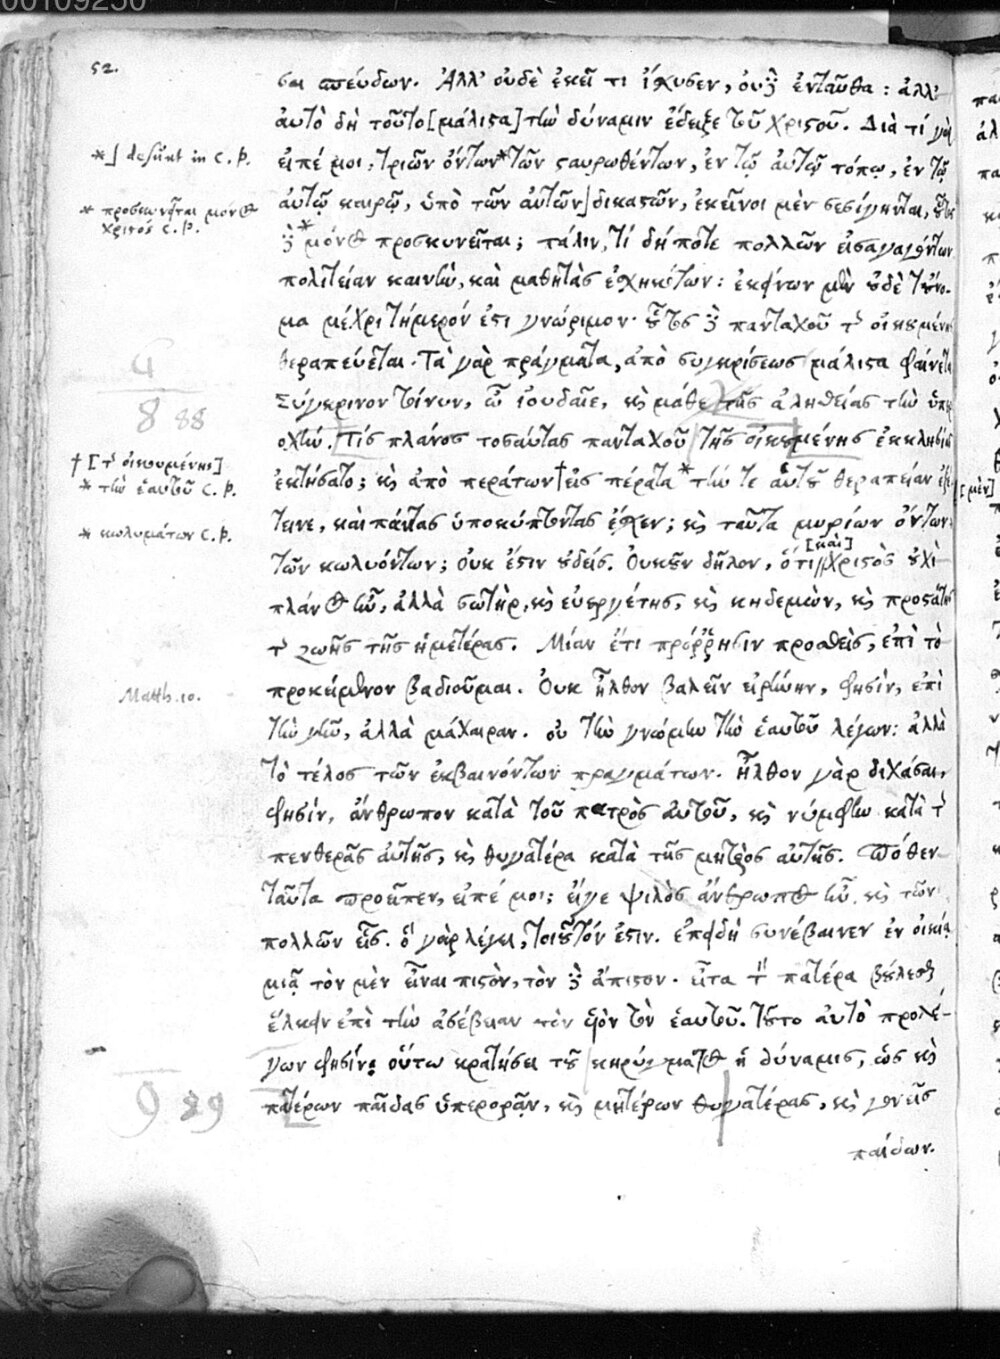 00109250
52.
σαι σπεύδων. Ἀλλ' οὐδὲ ἐκεῖ τι ἴσχυσεν, οὐδὲ ἐνταῦθα : ἀλλ'
αὐτὸ δὴ τοῦτο [μάλιστα] τὴν δύναμιν ἔδειξε τοῦ Χριστοῦ. Διὰ τί γὰρ
*] desunt in C. P.
εἰπέ μοι, τριῶν ὄντων * τῶν σταυρωθέντων, ἐν τῷ αὐτῷ τόπῳ, ἐν τῷ
* προσκυνεῖται μόνος Χριστός C. P.
αὐτῷ καιρῷ, ὑπὸ τῶν αὐτῶν] δικαστῶν, ἐκεῖνοι μὲν σεσίγηνται, οὗτος
δὲ * μόνος προσκυνεῖται; πάλιν, τί δήποτε πολλῶν εἰσαγαγόντων
πολιτείαν καινὴν, καὶ μαθητὰς ἐσχηκότων : ἐκείνων μὲν οὐδὲ τοὔνο-
μα μέχρι τήμερόν ἐστι γνώριμον. οὗτος δὲ πανταχοῦ τῆς οἰκουμένης
θεραπεύεται. Τὰ γὰρ πράγματα, ἀπὸ συγκρίσεως μάλιστα φαίνεται
Σύγκρινον τοίνυν, ὦ ἰουδαῖε, καὶ μάθε τῆς ἀληθείας τὴν ὑπερ
8 88
οχήν. Τίς πλάνος τοσαύτας πανταχοῦ τῆς οἰκουμένης ἐκκλησίας
† [τῆς οἰκουμένης]
* τὴν ἑαυτοῦ C. P.
ἐκτήσατο; καὶ ἀπὸ περάτων † εἰς πέρατα * τήν τε αὐτοῦ θεραπείαν ἐξέ
τεινε, καὶ πάντας ὑποκύπτοντας ἔσχεν; καὶ ταῦτα μυρίων ὄντων
* κωλυμάτων C. P.
τῶν κωλυόντων; οὐκ ἔστιν οὐδείς. Οὐκοῦν δῆλον, ὅτι [καὶ] Χριστὸς οὐχὶ
πλάνος ἦν, ἀλλὰ σωτὴρ, καὶ εὐεργέτης, καὶ κηδεμὼν, καὶ προστάτης
τῆς ζωῆς τῆς ἡμετέρας. Μίαν ἔτι πρόῤῥησιν προσθεὶς, ἐπὶ τὸ
Matth. 10.
προκείμενον βαδιοῦμαι. Οὐκ ἦλθον βαλεῖν εἰρήνην, φησὶν, ἐπὶ
τὴν γῆν, ἀλλὰ μάχαιραν. οὐ τὴν γνώμην τὴν ἑαυτοῦ λέγων : ἀλλὰ
τὸ τέλος τῶν ἐκβαινόντων πραγμάτων. Ἦλθον γὰρ διχάσαι,
φησὶν, ἄνθρωπον κατὰ τοῦ πατρὸς αὐτοῦ, καὶ νύμφην κατὰ τῆς
πενθερᾶς αὐτῆς, καὶ θυγατέρα κατὰ τῆς μητρὸς αὐτῆς. Πόθεν
ταῦτα προεῖπεν, εἰπέ μοι; εἴγε ψιλὸς ἄνθρωπος ἦν, καὶ τῶν
πολλῶν εἷς. ὃ γὰρ λέγει, τοιοῦτόν ἐστιν. ἐπειδὴ συνέβαινεν ἐν οἰκίᾳ
μιᾷ τὸν μὲν εἶναι πιστὸν, τὸν δὲ ἄπιστον. εἶτα τὸν πατέρα βούλεσθαι
ἕλκειν ἐπὶ τὴν ἀσέβειαν τὸν υἱὸν τὸν ἑαυτοῦ. τοῦτο αὐτὸ προλέ-
γων φησίν : οὕτω κρατήσει τοῦ κηρύγματος ἡ δύναμις, ὡς καὶ
9 89
πατέρων παῖδας ὑπερορᾷν, καὶ μητέρων θυγατέρας, καὶ γονεῖς
παίδων.